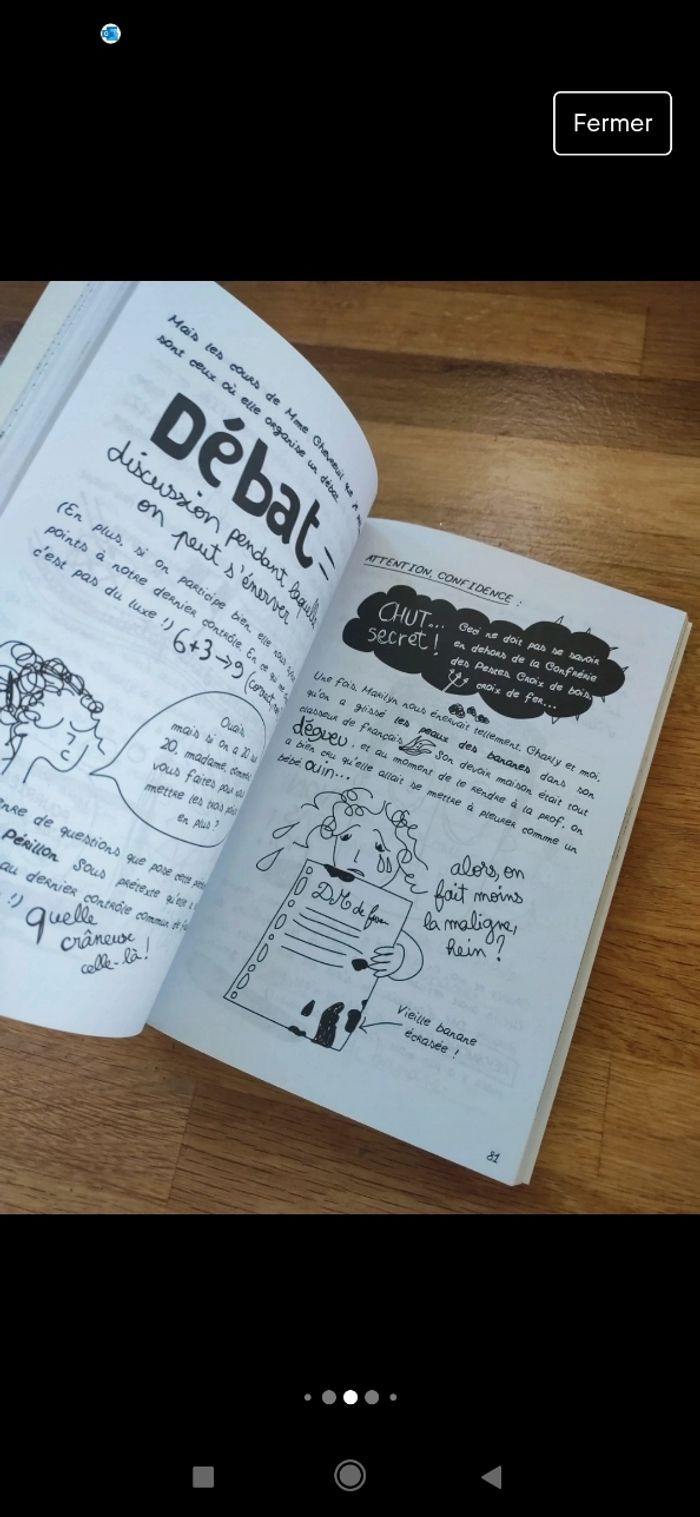 Fermer
Mais les cours de Mme Chevreuil que je
sont ceux où elle organise un débat.
Débat =
discussion pendant laquelle
on peut s'énerver
(En plus, si on participe bien elle nous
points à notre dernier contrôle. En ce qui me
c'est pas du luxe !) 6+3→9 (
Ouais,
mais si on a 20 sur
20, madame, comment
vous faites pour
mettre les trois points
en plus ?
de questions que pose cette
Périllon. Sous prétexte qu'elle a
au dernier contrôle commun et
!) quelle
crâneuse
celle-là !
ATTENTION, CONFIDENCE :
CHUT...
secret !
Ceci ne doit pas se savoir
en dehors de la Confrérie
des Pestes. Croix de bois,
croix de fer...
Une fois, Marilyn nous énervait tellement, Charly et moi,
qu'on a glissé les peaux des bananes dans son
classeur de français. Son devoir maison était tout
dégueu, et au moment de le rendre à la prof, on
a bien cru qu'elle allait se mettre à pleurer comme un
bébé ouin...
DM de fran
alors, on
fait moins
la maligne,
hein ?
Vieille banane
écrasée !
81